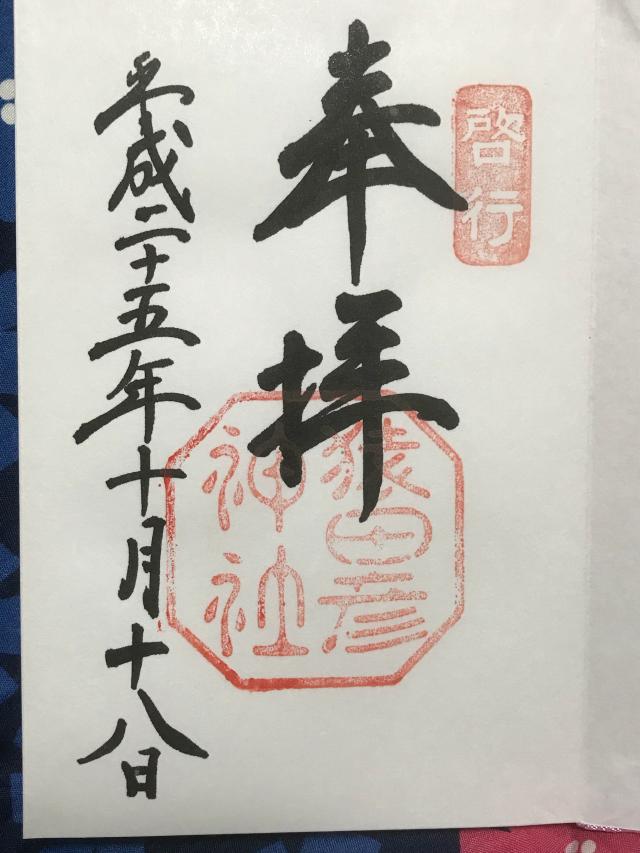 啓行
奉拝
猿田彦
神社
平成二十五年十月十八日